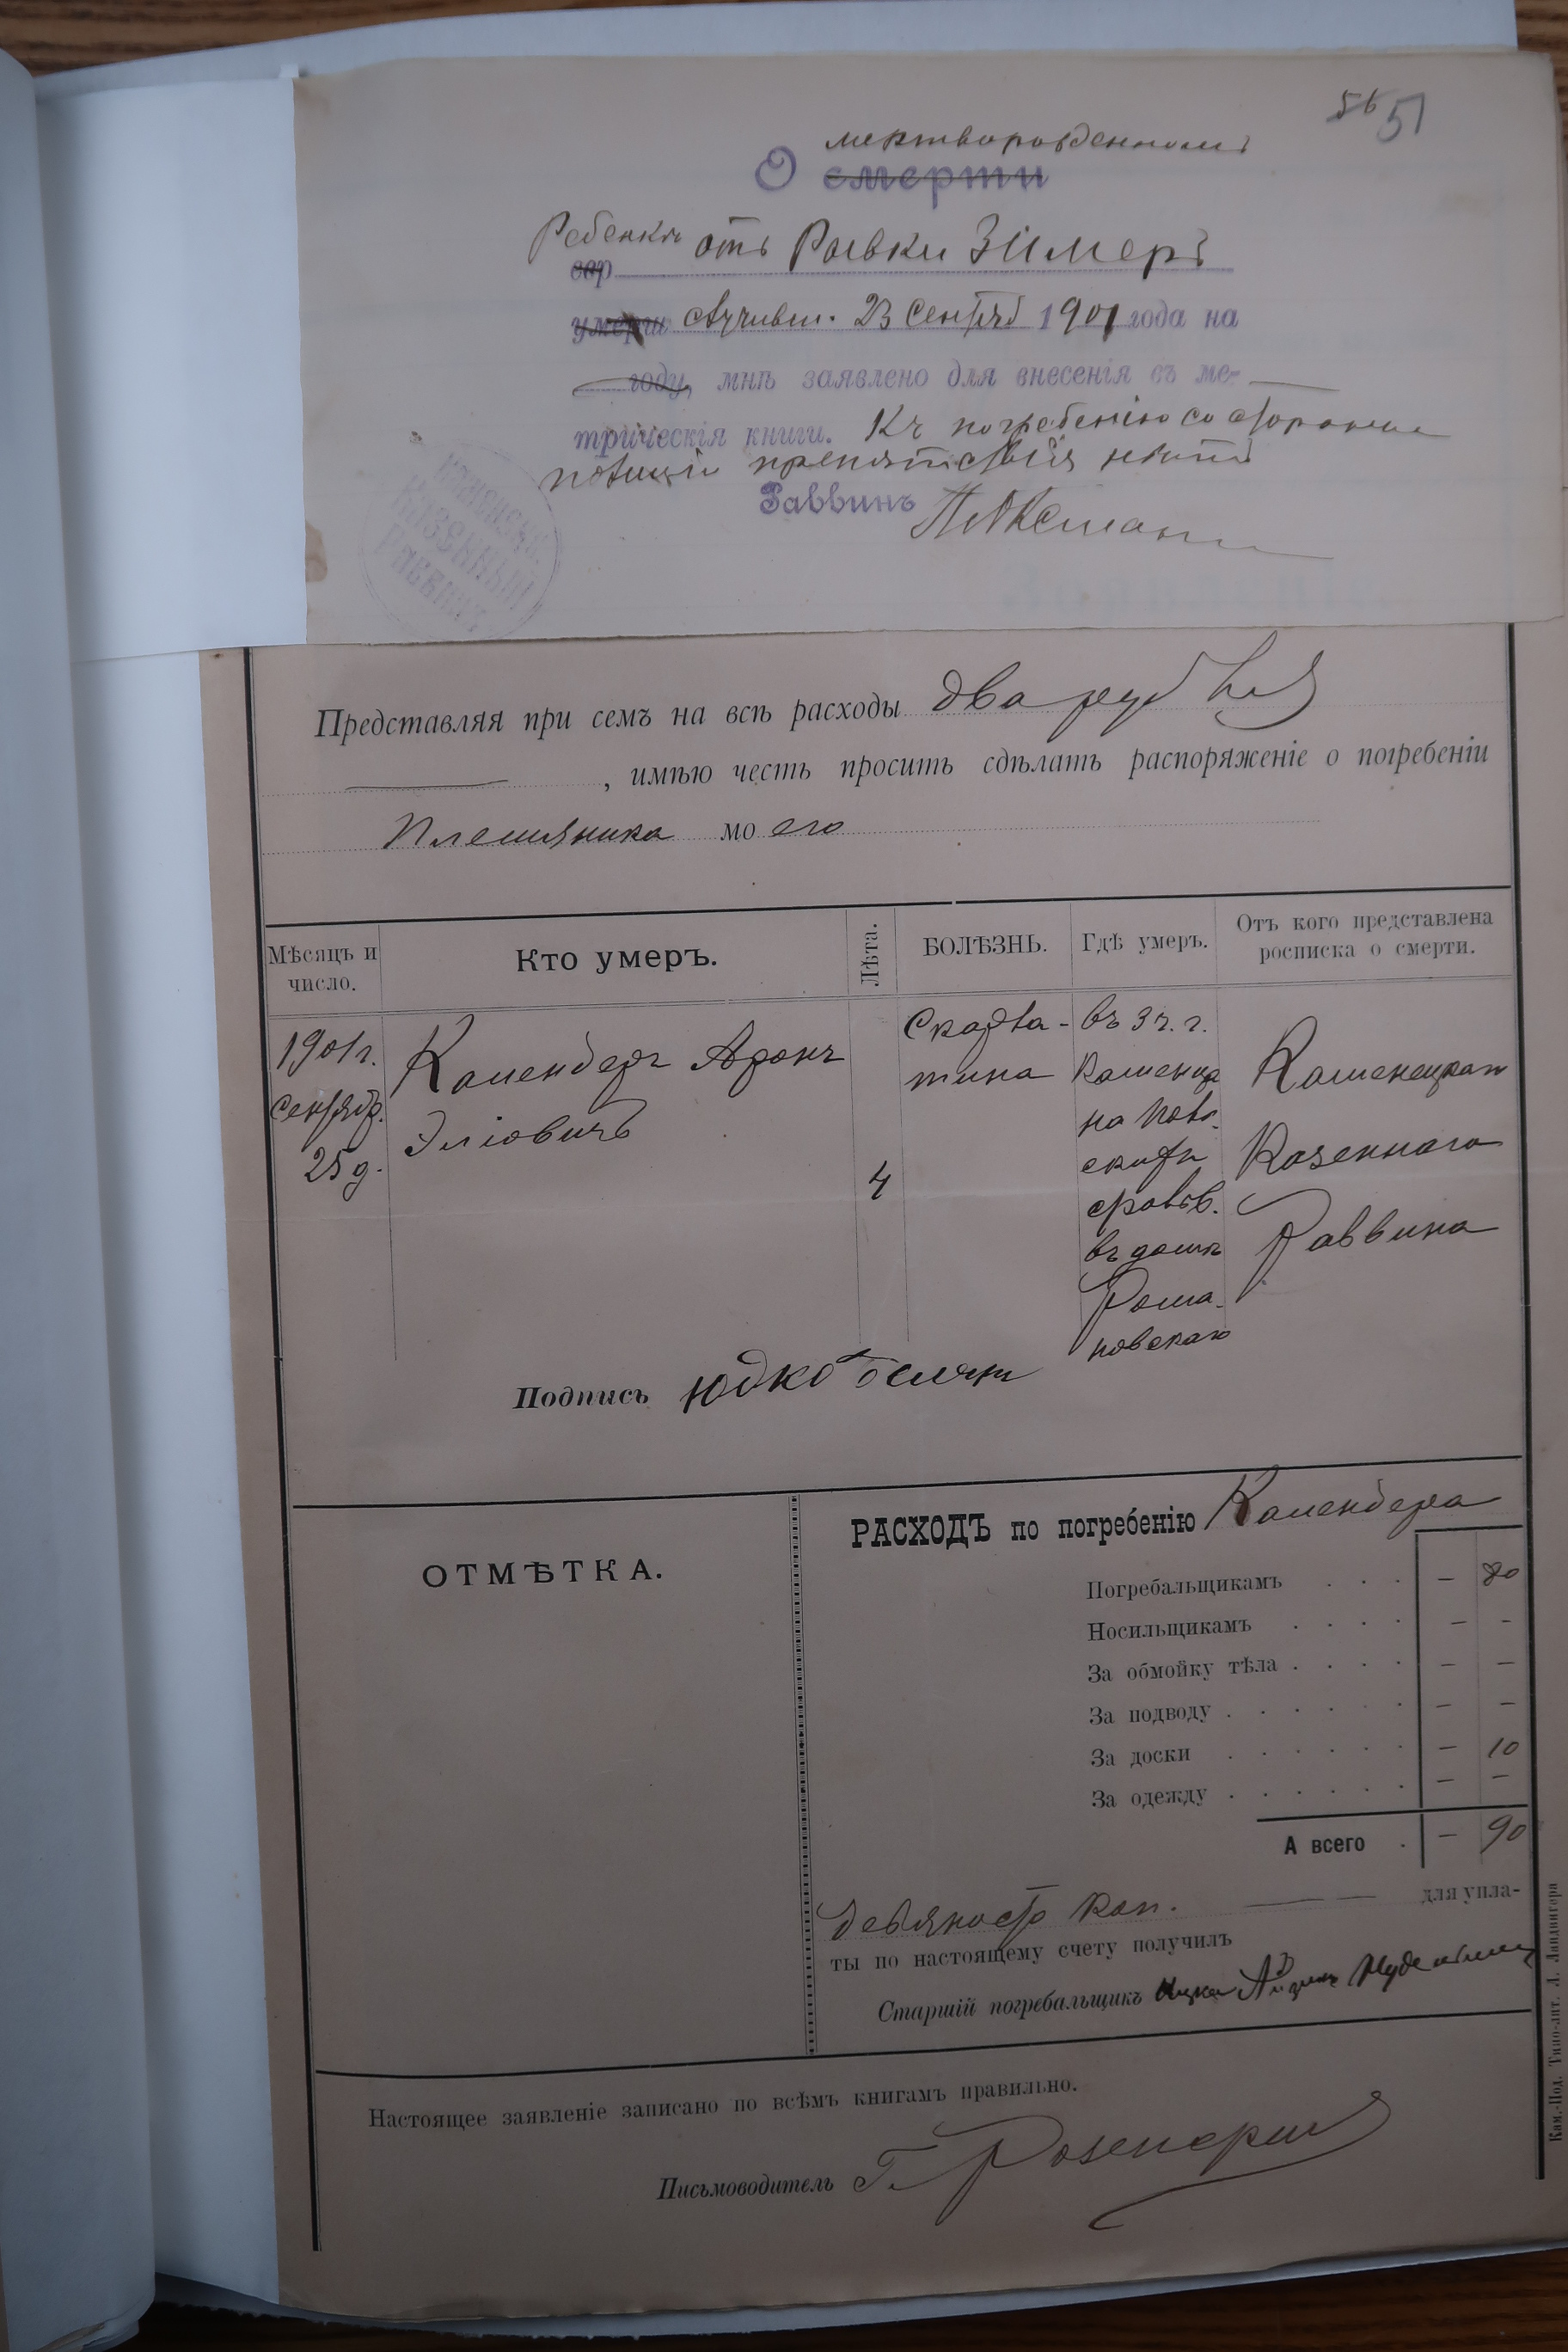 56 51
мертворожденномъ
О смерти
Ребенкѣ отъ Рывки Зимеръ
умерш случивш. 23 Сентяб 1901 года на
году, мнѣ заявлено для внесенія въ ме-
трическія книги. Къ погребенію со стороны
полиціи препятствія нѣтъ
Раввинъ
КАМЕНЕЦК.
КАЗЕННЫЙ
РАВВИНЪ
Представляя при семъ на всѣ расходы два руб
, имѣю честь просить сдѣлать распоряженіе о погребеніи
Племяника моего
Мѣсяцъ и число.
Кто умеръ.
Лѣта.
БОЛѢЗНЬ.
Гдѣ умеръ.
Отъ кого представлена росписка о смерти.
1901 г.
сентябр.
25 д.
Каменберъ Аронъ
Эліовичъ
4
Скарла-
тина
въ 3 ч. г.
Каменца
на
въ домѣ
Рома-
новскаго
Каменецкаго
Казеннаго
Раввина
Подпись Юдко
ОТМѢТКА.
РАСХОДЪ по погребенію Каменбера
Погребальщикамъ . . . — 80
Носильщикамъ . . . . — -
За обмойку тѣла . . . . — —
За подводу . . . . . . — —
За доски . . . . . . — 10
За одежду . . . . . . — —
А всего . — 90
девяносто коп. для упла-
ты по настоящему счету получилъ
Старшій погребальщикъ
Настоящее заявленіе записано по всѣмъ книгамъ правильно.
Письмоводитель Г.
Кам.-Под. Типо-лит. Л. Ландвигера